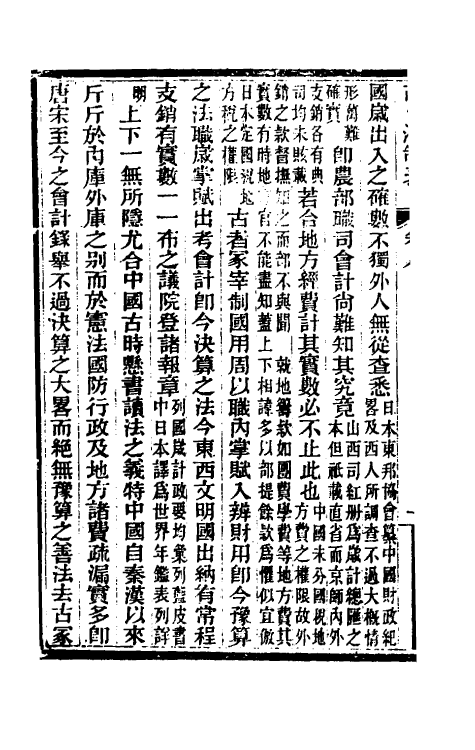 國歲出入之確數不獨外人無從查悉日本東邦協會纂中國財政紀畧及西人所調查不過大概情
形萬難確實即農部職司會計尚難知其究竟山西司紅册爲歲計總匯之本但祇載直省而京師內外
支銷各有典司均未賅載若合地方經費計其實數必不止此也中國未分國稅地方費之權限故外
銷之款督撫知之而部不與聞就地籌款如團費學費等地方費其實數有時地方官不能盡知蓋上下相諱多以部提餘款爲懼似宜倣
日本定國稅地方稅之權限古者冢宰制國用周以職內掌賦入辨財用即今豫算
之法職歲掌賦出考會計即今決算之法今東西文明國出納有常程
支銷有實數一一布之議院登諸報章列國歲計政要均彙列藍皮書中日本譯爲世界年鑑表列詳
明上下一無所隱尤合中國古時懸書讀法之義特中國自秦漢以來
斤斤於內庫外庫之别而於憲法國防行政及地方諸費疏漏實多即
唐宋至今之會計錄舉不過決算之大畧而絕無豫算之善法去古冢